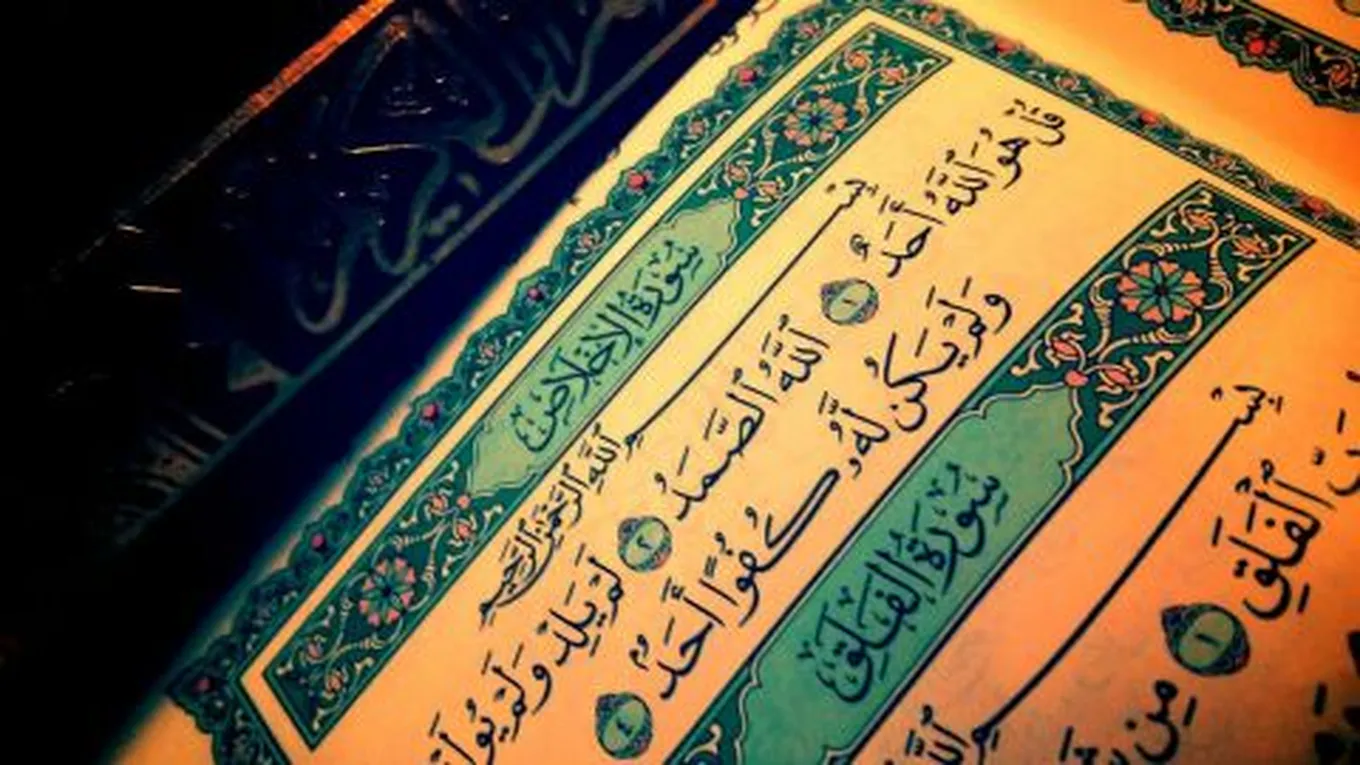 سُورَةُ الإِخْلَاصِ
بِسْمِ ٱللَّهِ ٱلرَّحْمَٰنِ ٱلرَّحِيمِ
قُلْ هُوَ ٱللَّهُ أَحَدٌ ١ ٱللَّهُ ٱلصَّمَدُ ٢ لَمْ يَلِدْ وَلَمْ يُولَدْ
وَلَمْ يَكُن لَّهُۥ كُفُوًا أَحَدٌۢ ٤
سُورَةُ الفَلَقِ
بِسْمِ ٱللَّهِ
ٱلْفَلَقِ ١ مِن